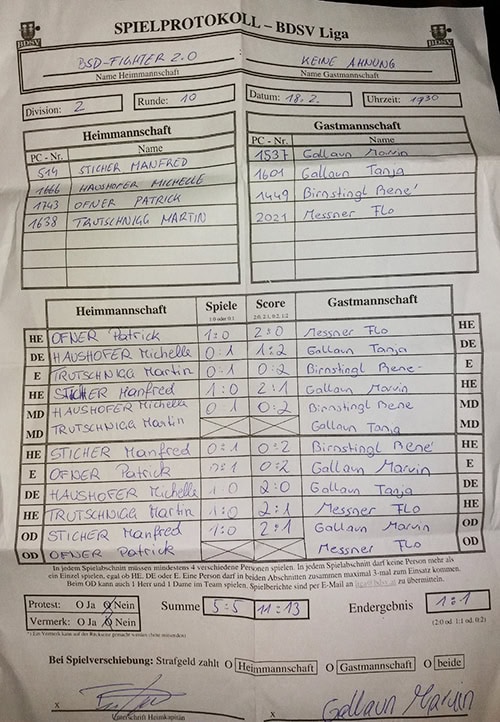 SPIELPROTOKOLL – BDSV Liga
BDSV
BDSV
BSD-FIGHTER 2.0
KEINE AHNUNG
Name Heimmannschaft
Name Gastmannschaft
Division: 2
Runde: 10
Datum: 18.2.
Uhrzeit: 1930
Heimmannschaft
Gastmannschaft
PC - Nr. Name
PC - Nr. Name
514 STICHER MANFRED
1537 Gallaun Marvin
1666 HAUSHOFER MICHELLE
1601 Gallaun Tanja
1743 OFNER PATRICK
1449 Birnstingl Rene'
1638 TRUTSCHNIGG MARTIN
2021 Messner Flo
Heimmannschaft Spiele Score Gastmannschaft
1:0 oder 0:1 2:0, 2:1, 0:2, 1:2
HE OFNER Patrick 1:0 2:0 Messner Flo HE
DE HAUSHOFER Michelle 0:1 1:2 Gallaun Tanja DE
E TRUTSCHNIGG Martin 1:0 0:2 Birnstingl Rene E
HE STICHER Manfred 1:0 2:1 Gallaun Marvin HE
MD HAUSHOFER Michella 0:1 0:2 Birnstingl Rene MD
MD TRUTSCHNIGG Martin Gallaun Tanja MD
HE STICHER Manfred 0:1 0:2 Birnstingl Rene' HE
E OFNER Patrick 0:1 0:2 Gallaun Marvin E
DE HAUSHOFER Michelle 1:0 2:0 Gallaun Tanja DE
HE TRUTSCHNIGG Martin 1:0 2:1 Messner Flo HE
OD STICHER Manfred 1:0 2:1 Gallaun Marvin OD
OD OFNER Patrick Messner Flo OD
In jedem Spielabschnitt müssen mindestens 4 verschiedene Personen spielen. In jedem Spielabschnitt darf keine Person mehr als
ein Einzel spielen, egal ob HE, DE oder E. Eine Person darf in beiden Abschnitten zusammen maximal 3-mal zum Einsatz kommen.
Beim OD kann auch 1 Herr und 1 Dame im Team spielen. Spielberichte sind per E-Mail an zu übermitteln.
Protest: O Ja O Nein
Vermerk: O Ja O Nein
Summe 5:5 11:13
Endergebnis 1:1
(2:0 od. 1:1 od. 0:2)
*) Ein Vermerk kann auf der Rückseite gemacht werden
Bei Spielverschiebung: Strafgeld zahlt O Heimmannschaft O Gastmannschaft O beide
x
x Gallaun Marvin
Unterschrift Heimkapitän